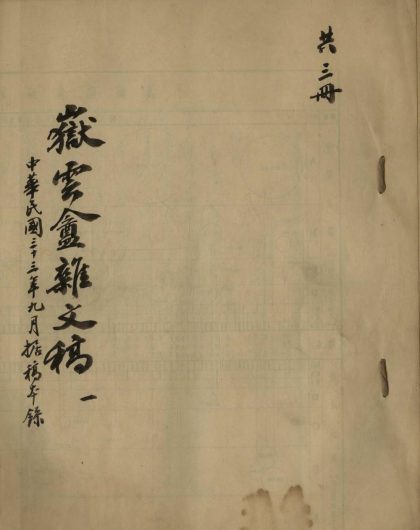 共三冊
嶽雲盦雜文稿 一
中華民國三十三年九月據稿本錄